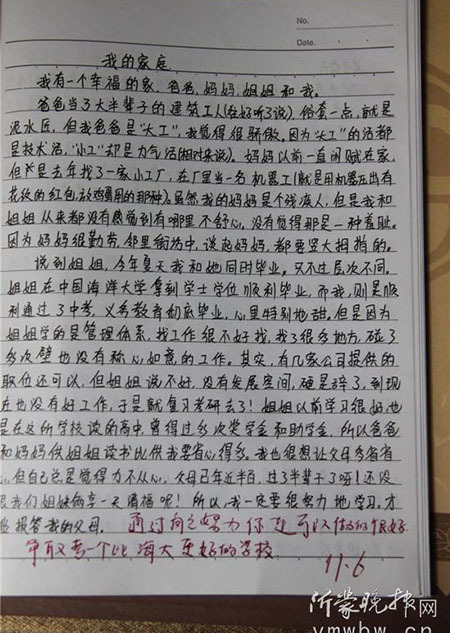 No.
Date.
我的家庭
我有一个幸福的家,爸爸,妈妈,姐姐和我。
爸爸当了大半辈子的建筑工人(往好听了说),俗套一点,就是
泥水匠,但我爸爸是"大工",我觉得很骄傲。因为"大工"的活都
是技术活,"小工"却是力气活(相对来说)。妈妈以前一直闲赋在家,
但是去年找了一家小工厂,在厂里当一名机器工(就是用机器压出有
花纹的红包,放鸡蛋用的那种)。虽然我的妈妈是个残疾人,但是我和
姐姐从来都没有感觉到有哪里不舒心,没有觉得那是一种羞耻。
因为妈妈很勤劳,邻里街坊中,谈起妈妈,都要竖大拇指的。
说到姐姐,今年夏天我和她同时毕业。只不过层次不同。
姐姐在中国海洋大学拿到学士学位顺利毕业,而我,则是顺
利通过了中考,义务教育们毕业,心里特别地甜,但是因为
姐姐学的是管理体系,找工作很不好找,找了很多地方,碰了
多次壁也没有称心如意的工作。其实,有几家公司提供的
职位还可以,但姐姐说不好,没有发展空间,硬是辞了,到现
在也没有好工作,于是就复习考研去了!姐姐以前学习很好,也
是在这所学校读的高中,曾得过多次奖学金和助学金,所以爸爸
和妈妈供姐姐读书比供我要省心得多。我也很想让父母多省省
心,但自己总是觉得力不从心,父母已年近半百,过了半辈子了呀!还没
跟我们姐妹俩享一天清福呢!所以,我一定要很努力地学习,才
能报答我的父母。通过自己努力你还可以做的很好
争取考一个比海大更好的学校
11.6
沂蒙晚报网
ymwbw.cn